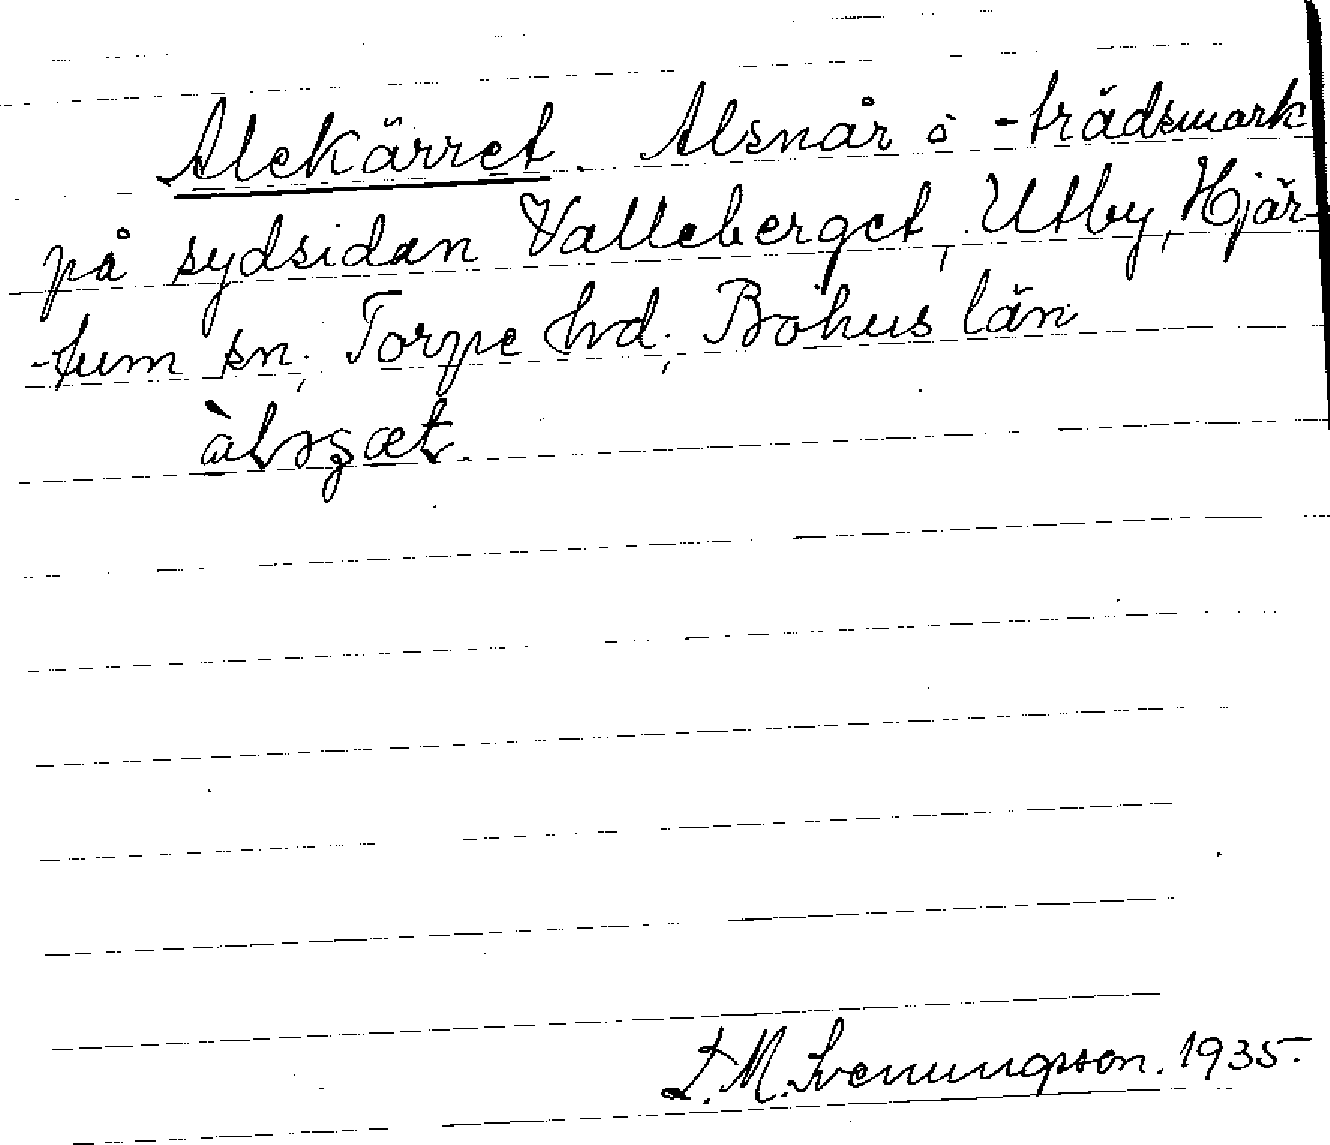 Alekärret. Alsnår o -trädsmark
på sydsidan Valleberget, Utby, Hjär-
-tum sn, Torpe hd, Bohus län
L. M. Svenungsson. 1935.